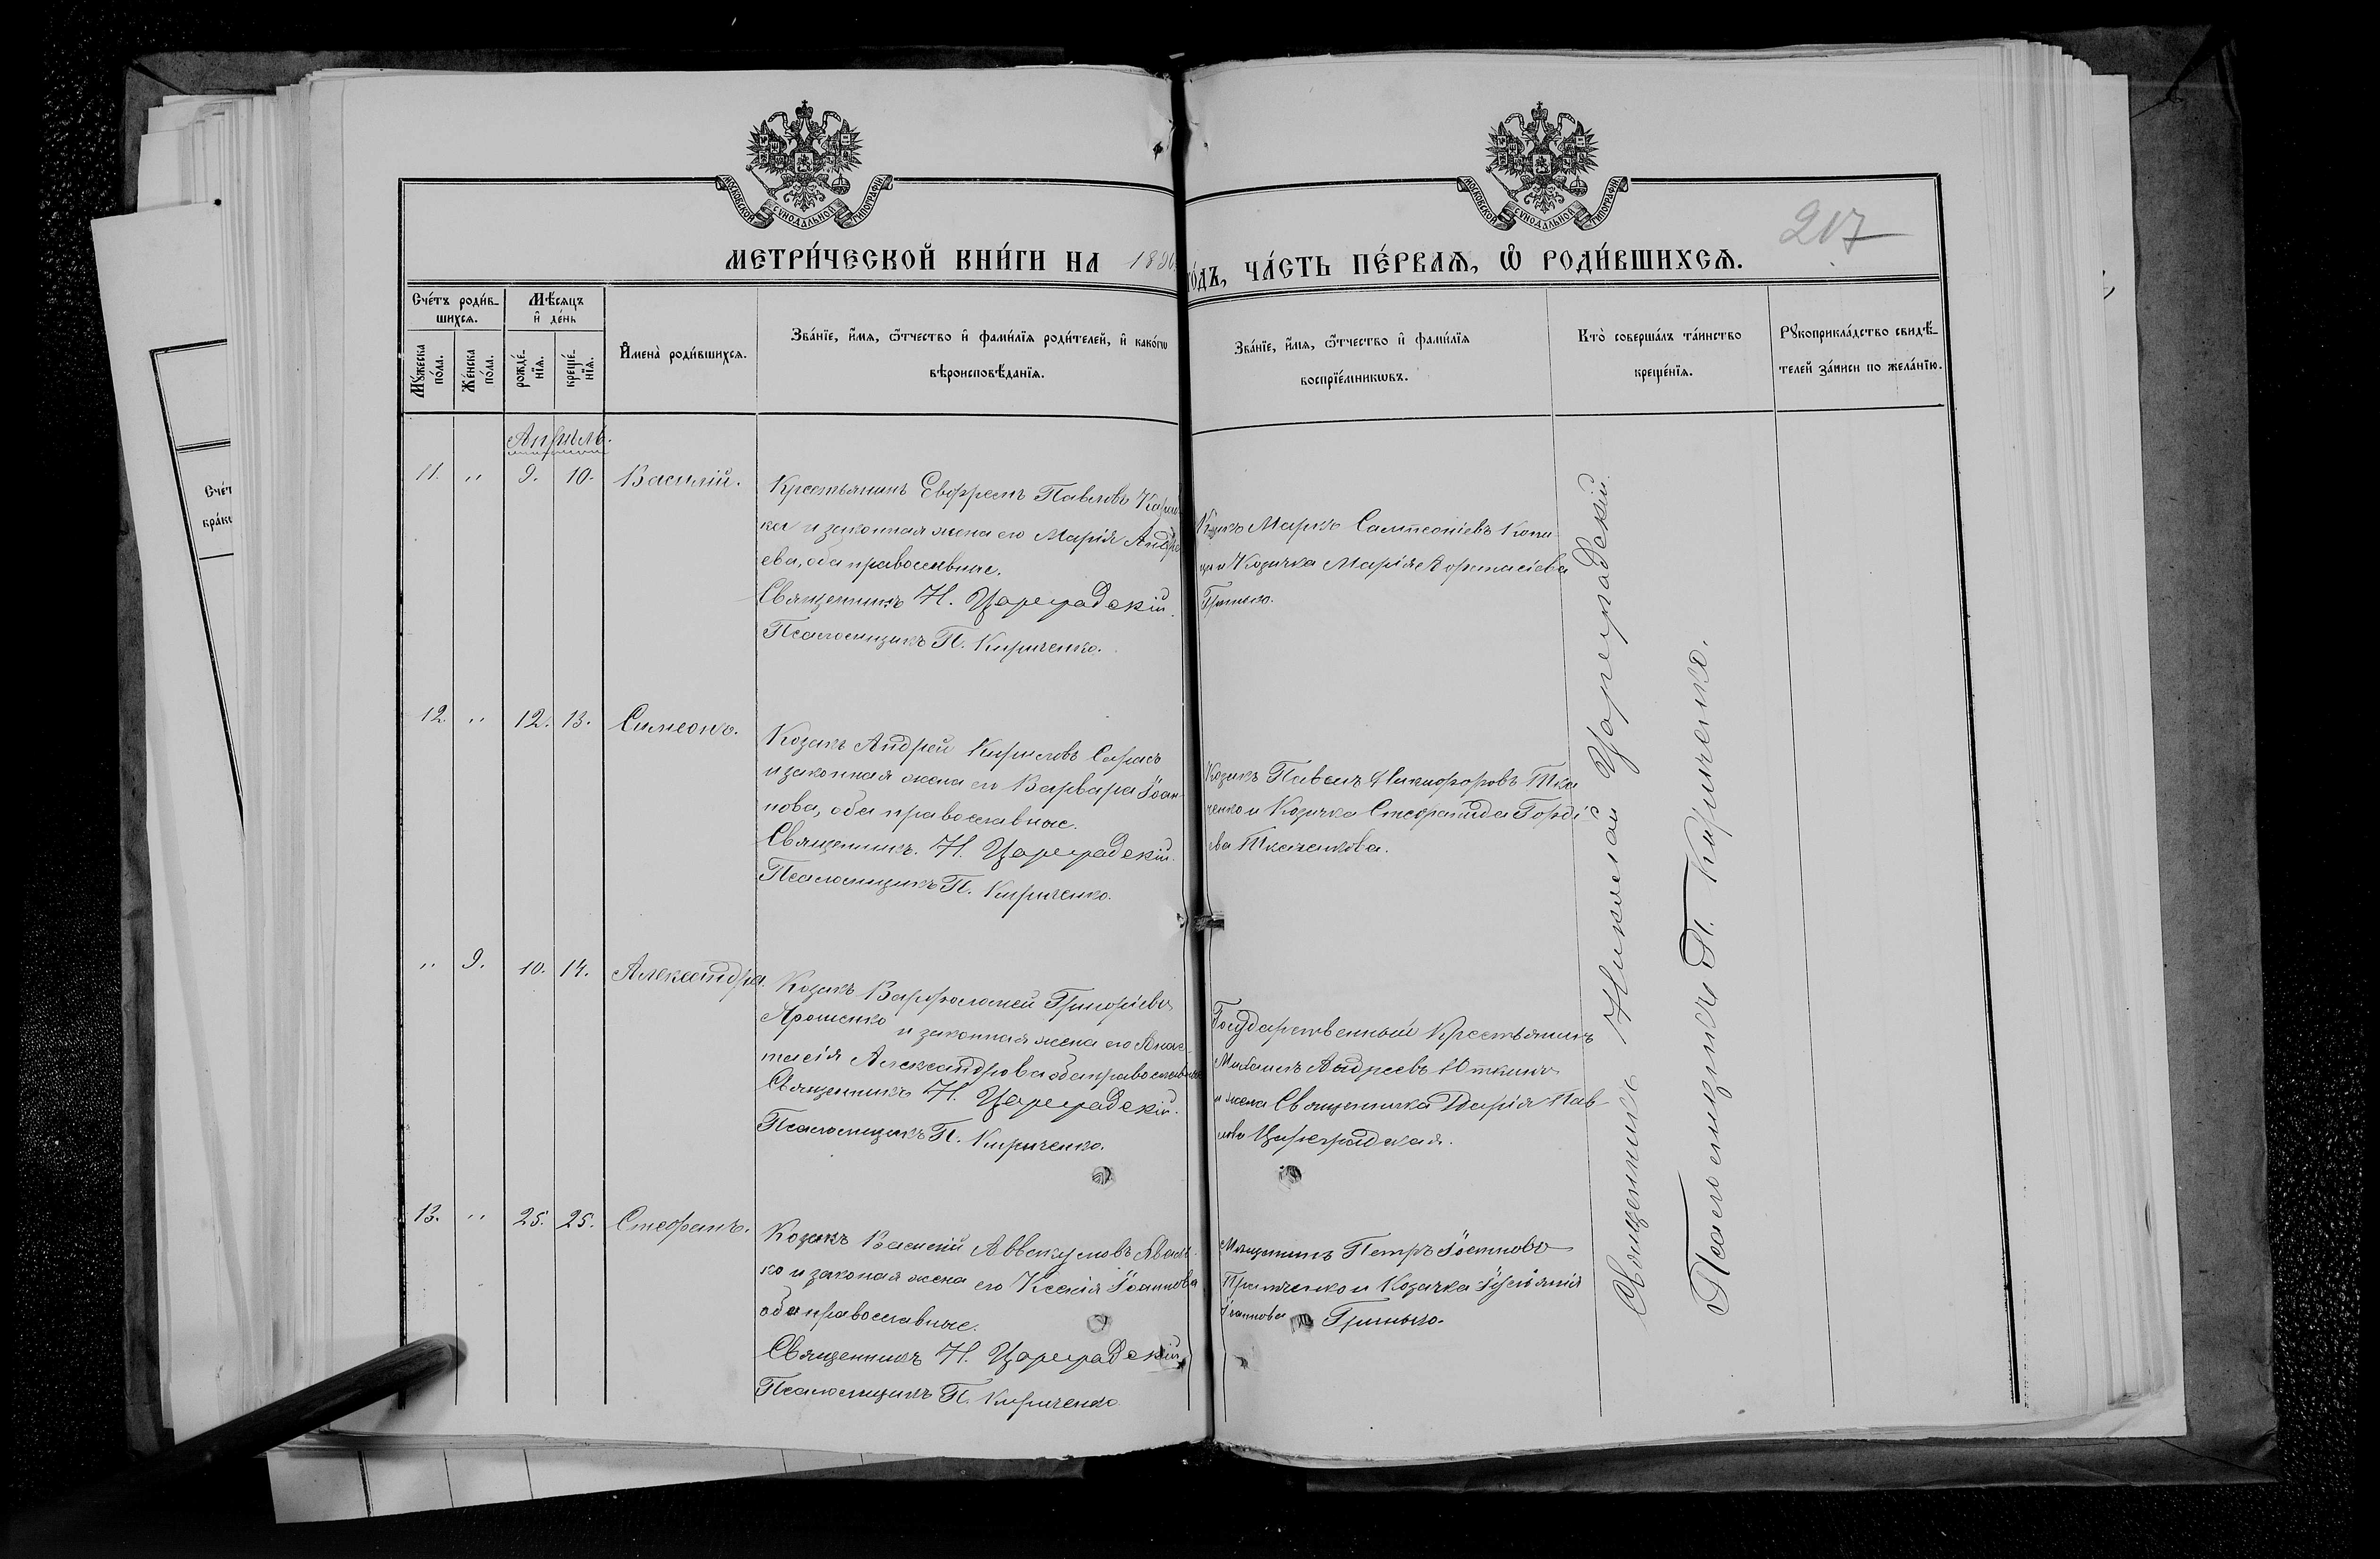 МОСКОВСКОЙ СУНОДАЛЬНОЙ ТИПОГРАФІИ
МОСКОВСКОЙ СУНОДАЛЬНОЙ ТИПОГРАФІИ
217
МЕТРИ́ЧЕСКОЙ КНИ́ГИ НА
ЧА́СТЬ ПЕ́РВАѦ, Ѽ РОДИ́ВШИХСѦ.
Сче́тъ роди́в-
шихсѧ.
Мꙋ́жеска
по́ла.
Же́нска
по́ла.
Мѣ́сяцъ
и҆ де́нь
рожде́-
нїѧ.
креще́-
нїѧ.
И҆мена̀ роди́вшихсѧ.
Зва́нїе, и҆́мѧ, ѻ҆́тчество и҆ фами́лїѧ роди́телей, и҆ како́гѡ
вѣроисповѣ́данїѧ.
Зва́нїе, и҆́мѧ, ѻ҆́тчество и҆ фами́лїѧ
воспрїе́мникѡвъ.
Кто̀ соверша́лъ та́инство
креще́нїѧ.
Рꙋкоприкла́дство свидѣ́-
телей за́писи по жела́нїю.
Апрѣль.
11. " 9. 10. Василій.
Крестьянинъ Евфремъ Павловъ
ка и законная жена его Марія Андре
ева, оба православные.
Священникъ Н. Цареградскій.
Псаломщикъ П. Кириченко.
Маркъ Сампсоніевъ Копи
ца и Козачка Марія
Гринько.
12. " 12. 13. Симеонъ.
Козакъ Андрей Кириловъ
и законная жена его Варвара Іоан-
нова, оба православные.
Священникъ Н. Цареградскій.
Псаломщикъ П. Кириченко.
Козакъ Павелъ Никифоровъ Тка
ченко и Козачка Стефанида Гордіе
ева Ткаченкова.
" 9. 10. 14. Александра.
Козакъ Варфоломей Григоріевъ
Ярошенко и законная жена его Анас-
тасія Александрова оба православные
Священникъ Н. Цареградскій.
Псаломщикъ П. Кириченко.
Государственный Крестьянинъ
Михаилъ Андреевъ Юткинъ
и жена Священника Дарія Пав-
лова Цареградская.
13. " 25. 25. Стефанъ.
Козакъ Василій Аввакумовъ
ко и законая жена его Ксенія Іоаннова
оба православные.
Священникъ Н. Цареградскій.
Псаломщикъ П. Кириченко
Мѣщанинъ Петръ
и Козачка
Іоаннова Гринько.
Священникъ Николай Цареградскій.
Псаломщикъ П. Кириченко.